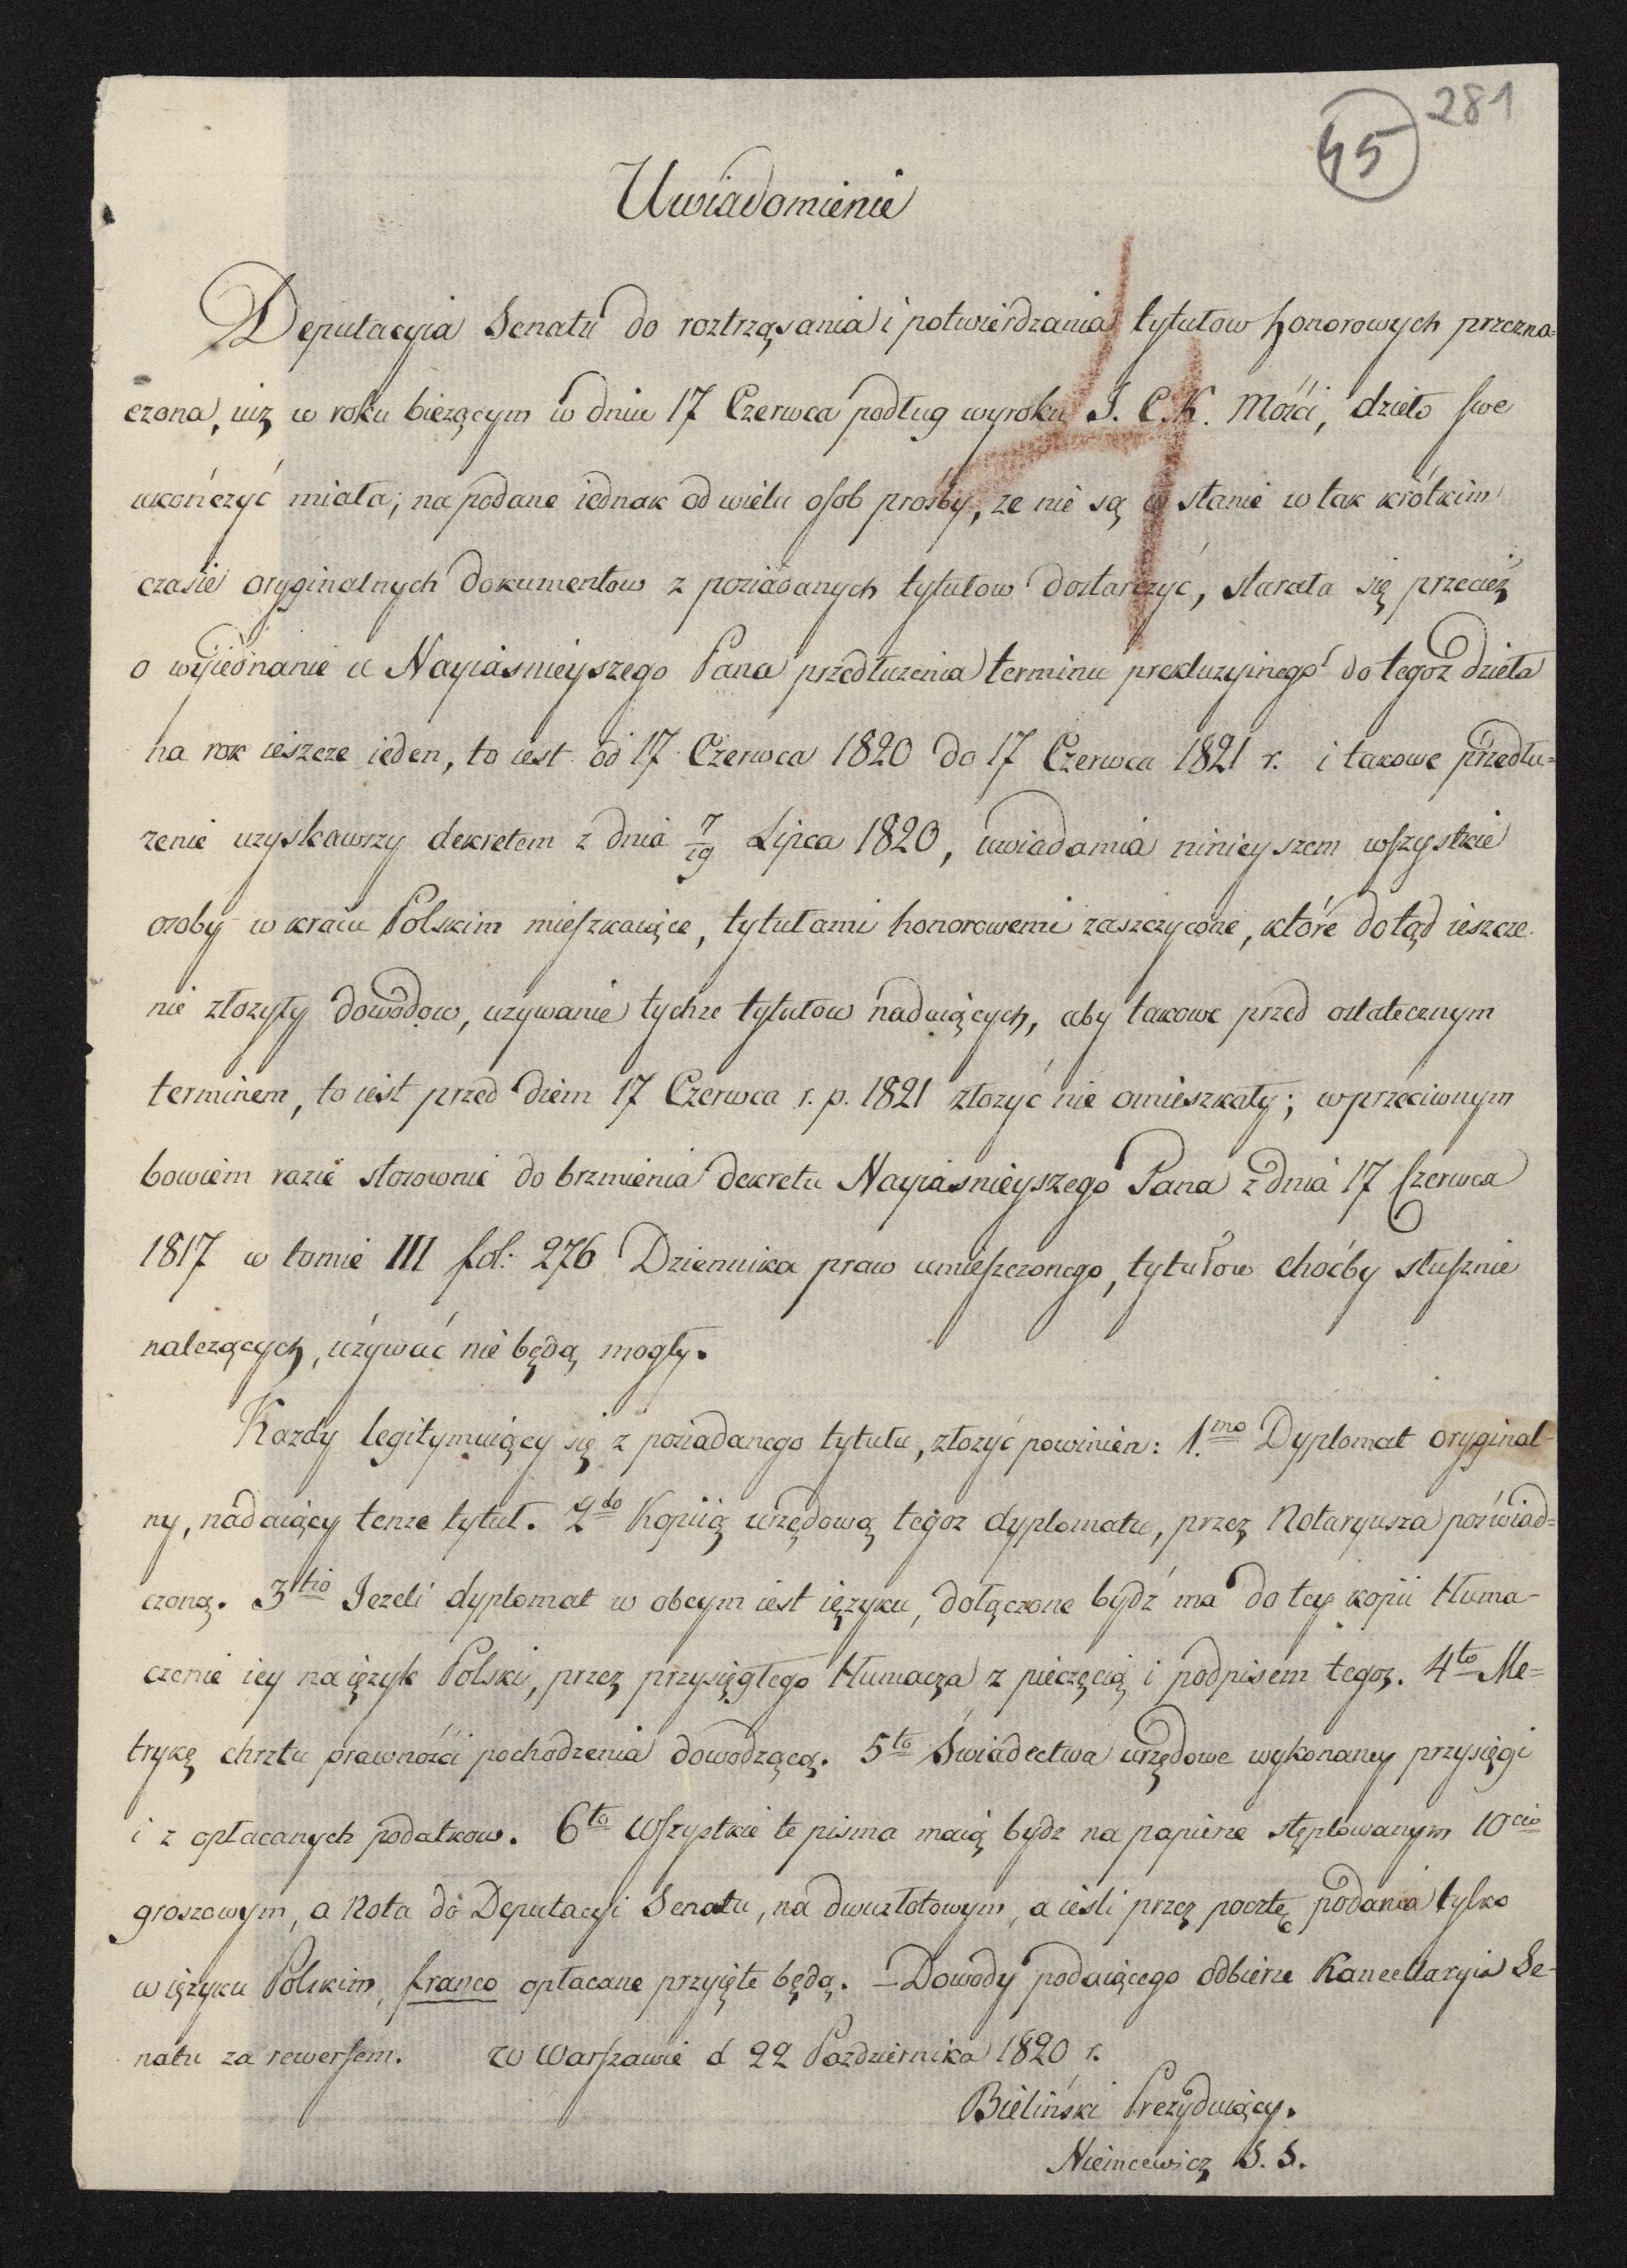 281
45
Uwiadomienie
Deputacyia Senatu do roztrząsania i potwierdzania tytułow honorowych przezna=
czona, iuż w roku bieżącym w dniu 17 Czerwca podług wyroku J. C. K. Mości, dzieło swe
ukończyć miała; na podane iednak od wielu osob prośby, ze nie są w stanie w tak krótkim
czasie oryginalnych dokumentow z posiadanych tytułow dostarczyć, starała się przecież
o wyiednanie u Nayiasnieyszego Pana przedłuzenia terminu prekluzyinego do tegoz dzieła
na rok ieszcze ieden, to iest od 17 Czerwca 1820 do 17 Czerwca 1821 r. i takowe przedłu=
zenie uzyskawszy dekretem z dnia 7/19 Lipca 1820, uwiadamia ninieyszem wszystkie
osoby w kraiu Polskim mieszkaiące, tytułami honorowemi zaszczycone, które dotąd ieszcze
nie złozyły dowodow, uzywanie tychze tytułow nadaiących, aby takowe przed ostatecznym
terminem, to iest przed dniem 17 Czerwca r. p. 1821 złozyć nie omieszkały; w przeciwnym
bowiem razie stosownie do brzmienia dekretu Nayiasnieyszego Pana z dnia 17 Czerwca
1817 w tomie III fol: 276 Dziennika praw umieszczonego, tytułow choćby słusznie
nalezących, używać nie będą mogły.
Kazdy legitymuiący się z posiadanego tytułu, złozyć powinien: 1.mo Dyplomat oryginal-
ny, nadaiący tenze tytuł. 2do Kopiią urzędową tegoz dyplomatu, przez Notaryusza poświad=
czoną. 3tio Jezeli dyplomat w obcym iest ięzyku, dołączone bydź ma do tey kopii tłuma-
czenie iey na ięzyk Polski, przez przysięgłego tłumacza z pieczęcią i podpisem tegoz. 4to Me=
trykę chrztu prawności pochodzenia dowodzącą. 5to Świadectwa urzędowe wykonaney przysięgi
i z opłacanych podatkow. 6to Wszystkie te pisma maią bydz na papierze stęplowanym 10cio
groszowym, a Nota do Deputacyi Senatu, na dwuzłotowym, a ieśli przez pocztę podania tylko
w ięzyku Polskim, franco opłacane przyięte będą. – Dowody podaiącego odbierze Kancellaryia Se-
natu za rewersem. w Warszawie d 22 Pazdziernika 1820 r.
Bieliński Prezyduiący.
Niemcewicz S. S.